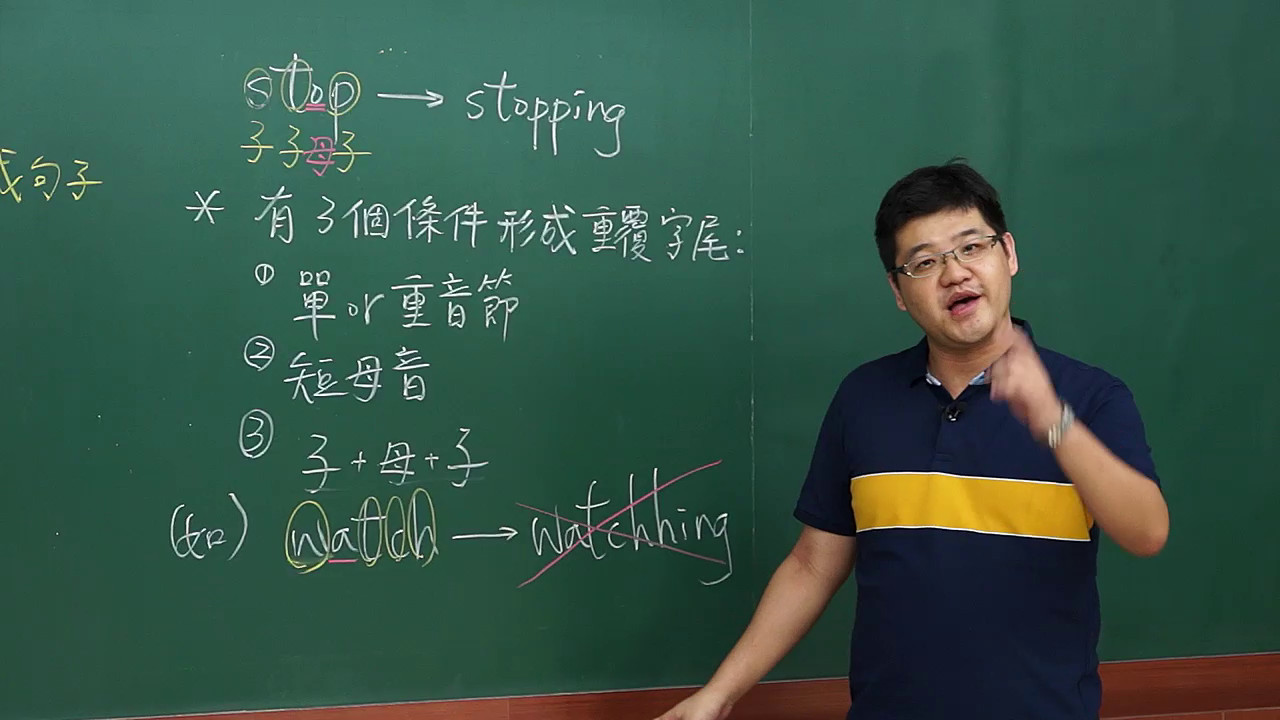 stop → stopping
子子母子
成句子
* 有3個條件形成重覆字尾:
① 單or重音節
② 短母音
③ 子+母+子
(如) watch → watchhing